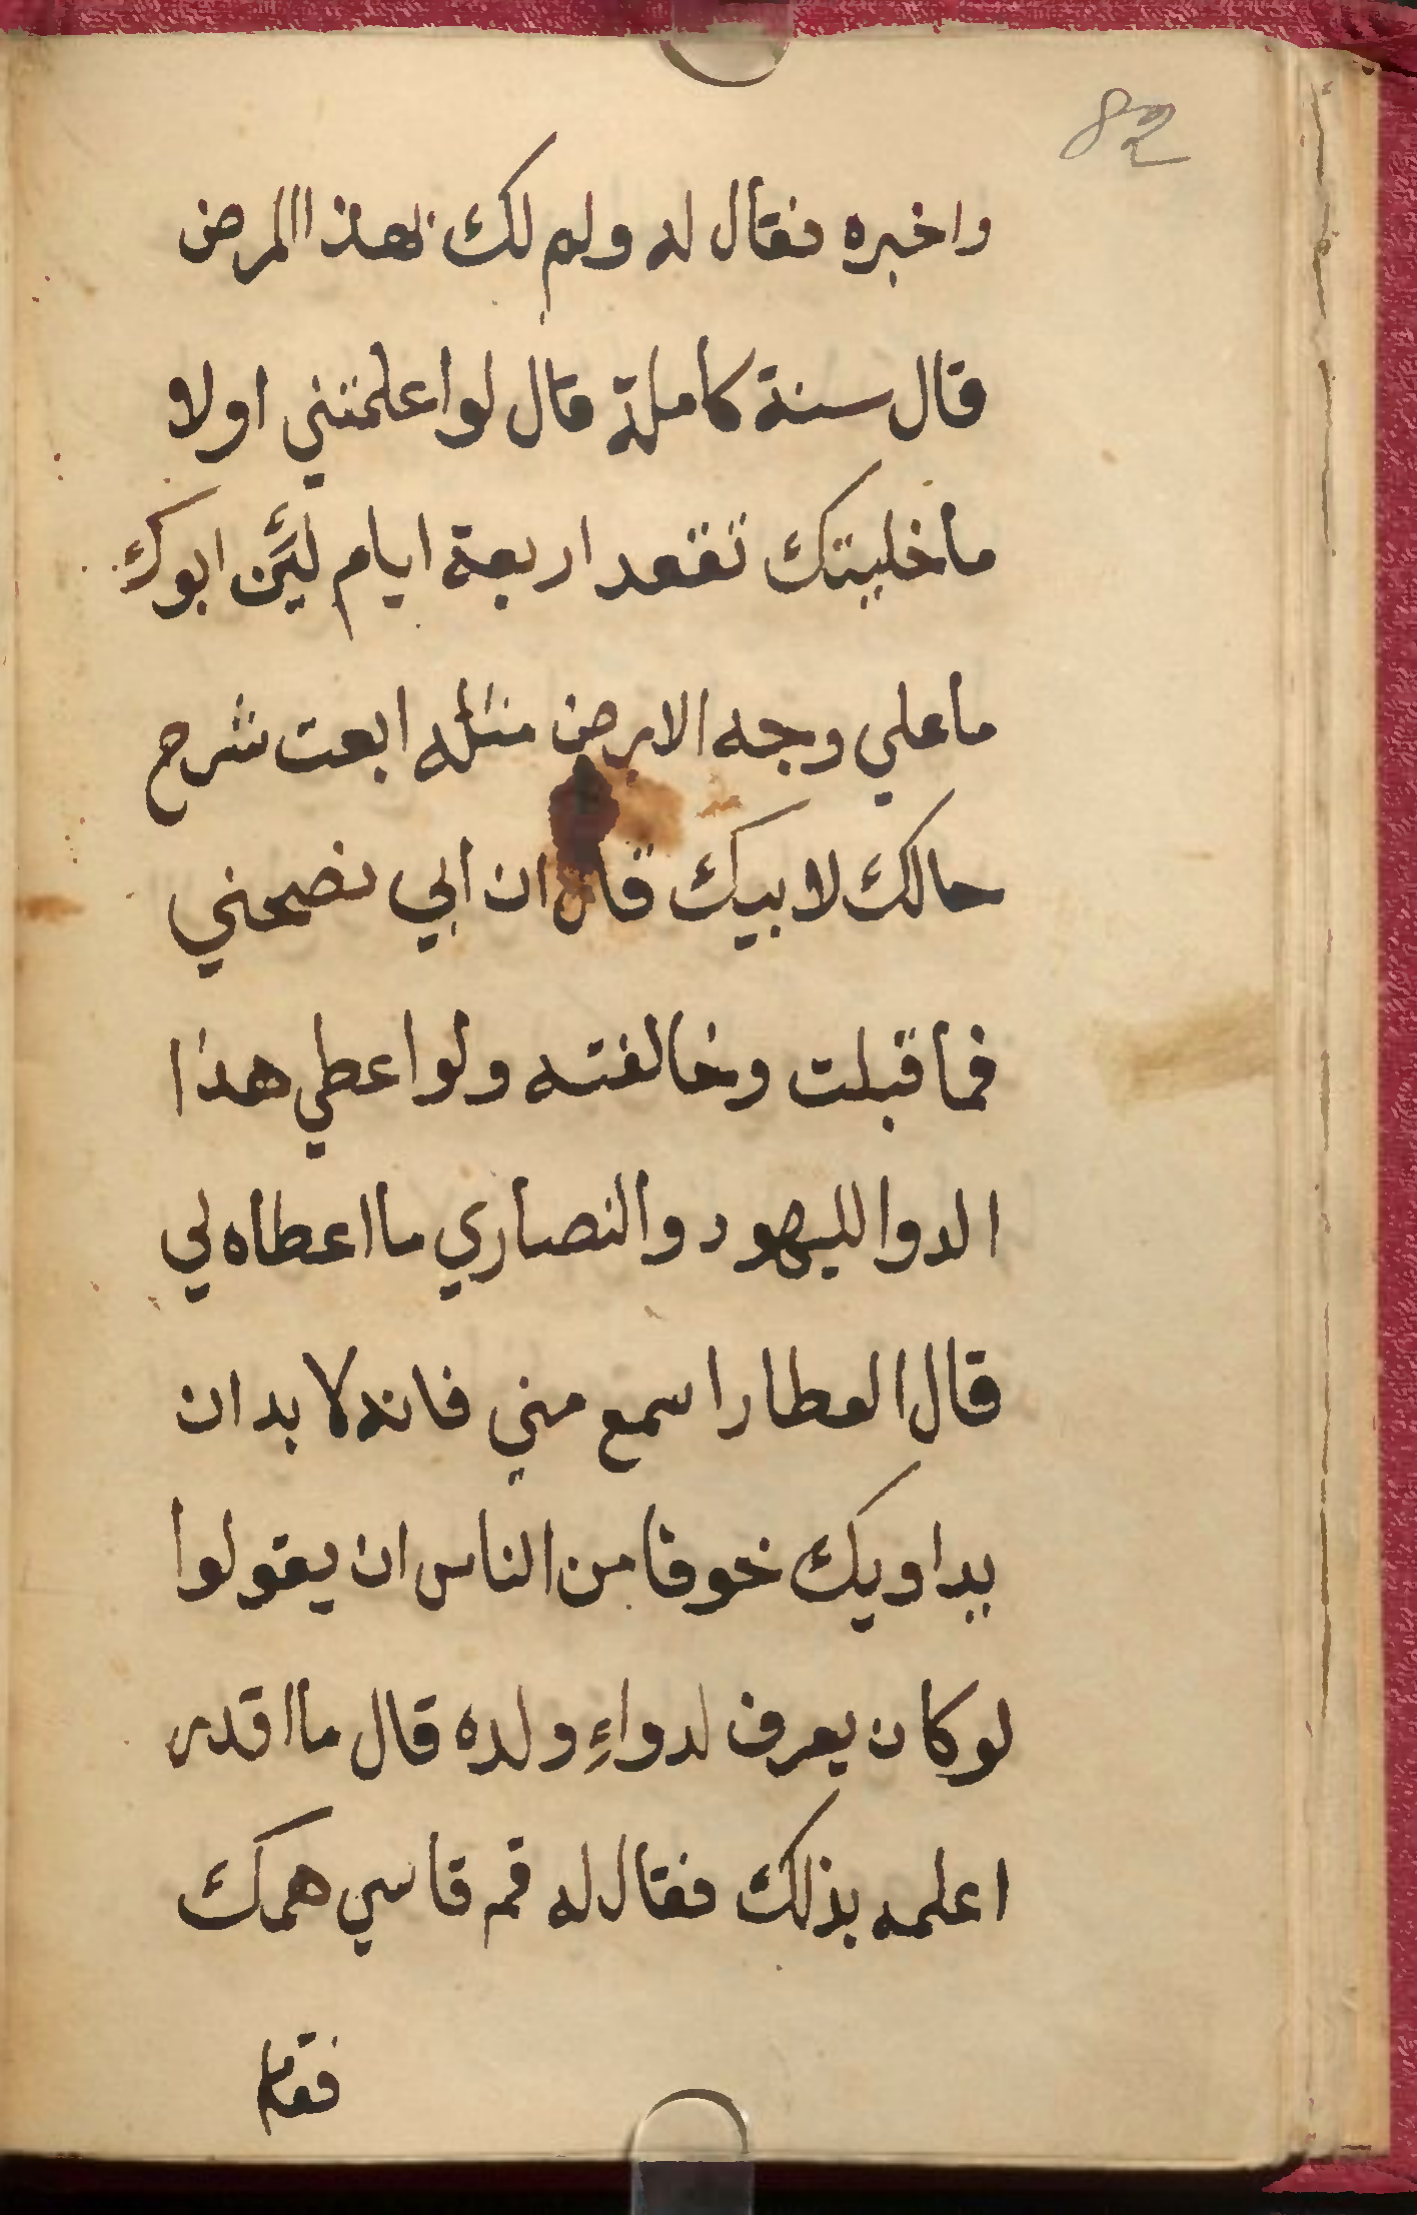 82
واخبره فقال له ولم لك بهذا المرض
قال سنة كاملة قال لو اعلمتني اولا
ما خليتك تقعد اربعة ايام لَيَّن ابوك
ما علي وجه الارض مثله ابعت شرح
حالك لابيك قال ان ابي نصحني
فما قبلت وخالفته ولو اعطي هذا
الدوا لليهود والنصاري ما اعطاه لي
قال العطار اسمع مني فانه لا بد ان
يداويك خوفا من الناس ان يقولوا
لو كان يعرف لدواءِ ولده قال ما اقدر
اعلمه بذلك فقال له قم قاسي همك
فقام